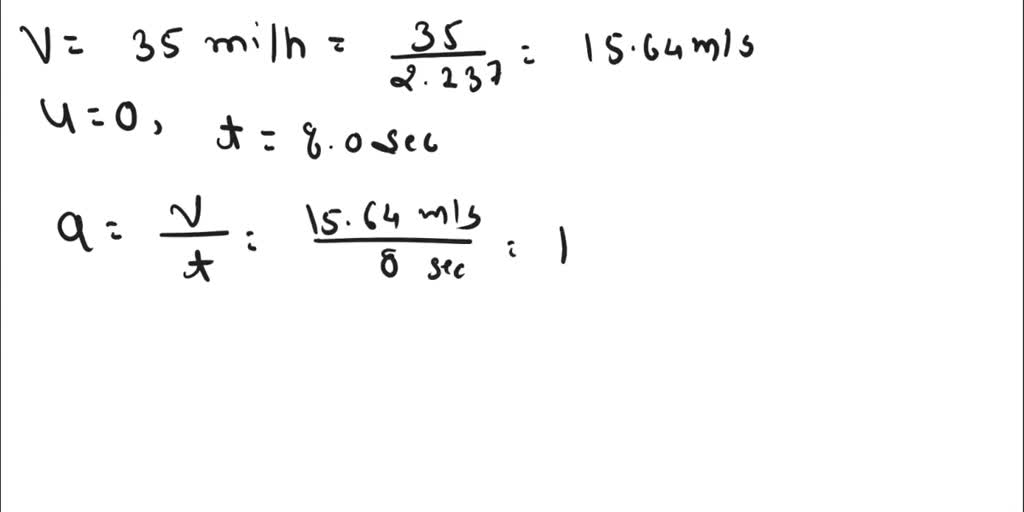 V = 35 mi/h = 35/2.237 = 15.64 m/s
u = 0, t = 8.0 sec
a = V/t = 15.64 m/s / 8 sec = 1